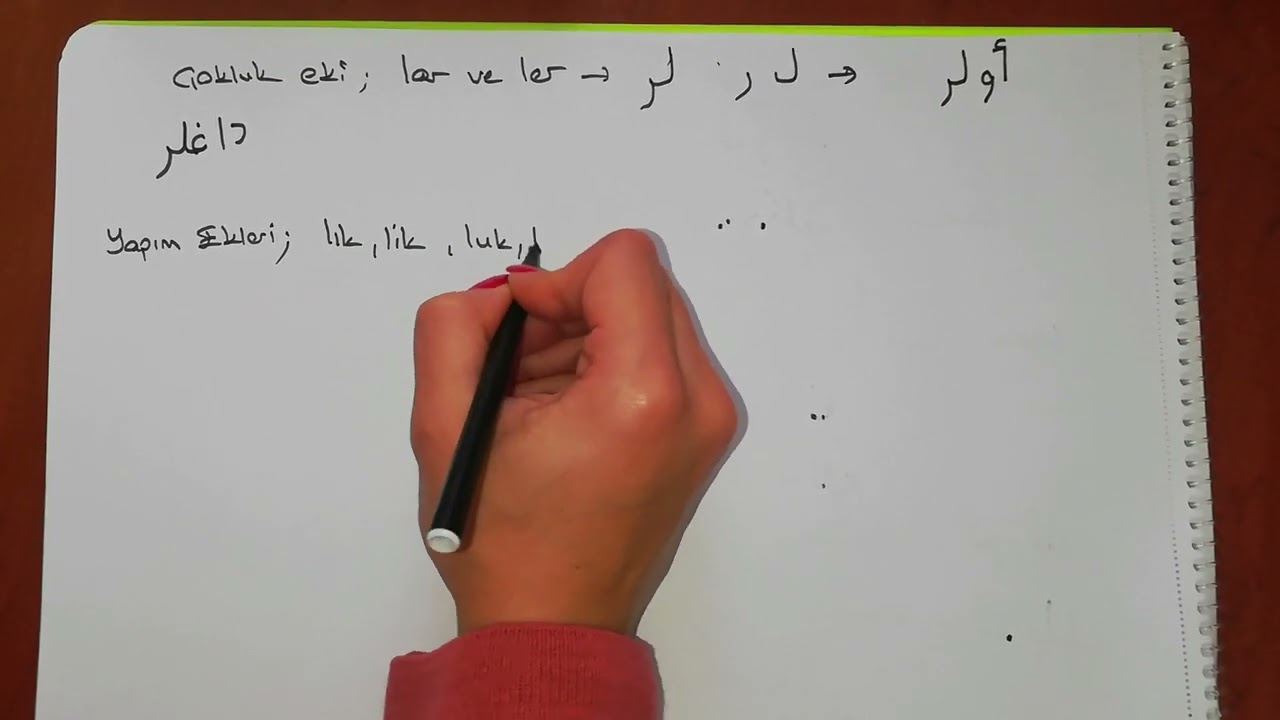 Çokluk eki; lar ve ler → لر ل ر → أولر
داغلر
Yapım Ekleri; lık, lik, luk, l